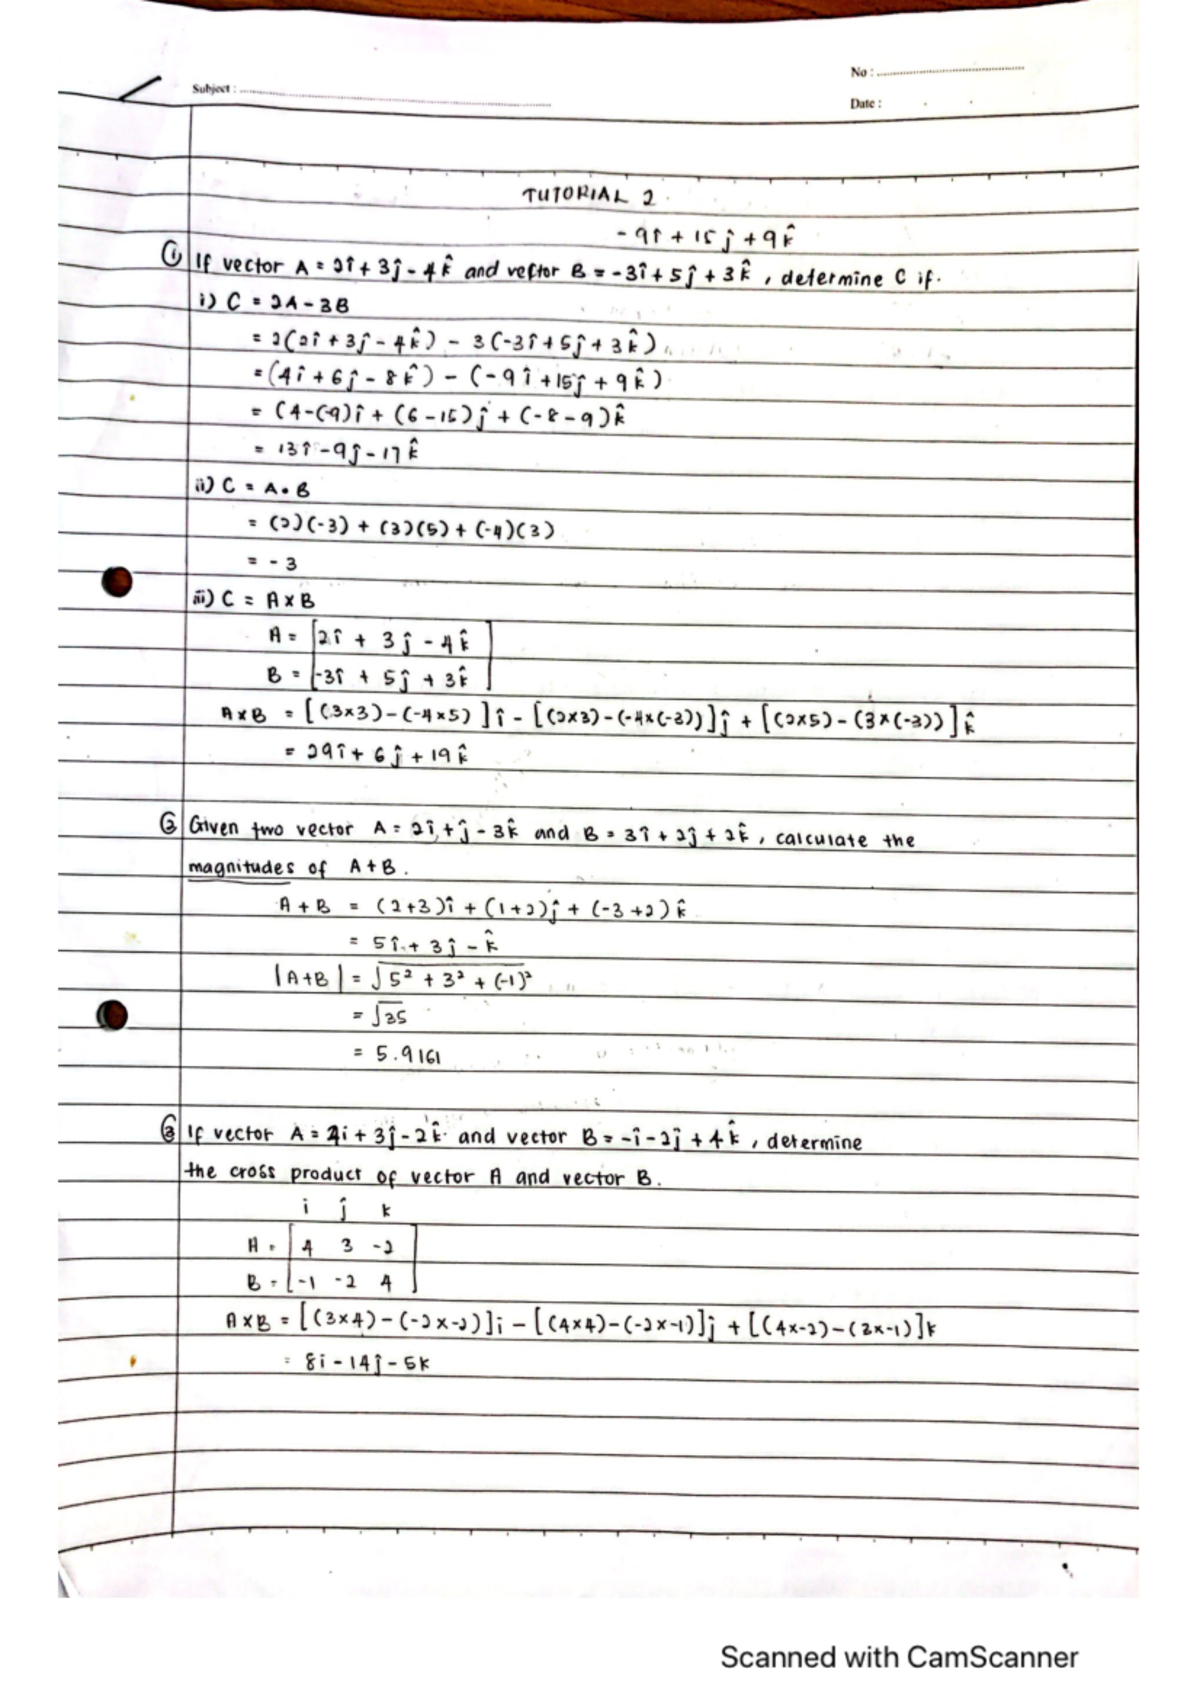 No :
Subject :
Date :
TUTORIAL 2
- 9î + 15ĵ + 9k̂
① If vector A = 2î + 3ĵ - 4k̂ and vector B = -3î + 5ĵ + 3k̂ , determine C if.
i) C = 2A - 3B
= 2(2î + 3ĵ - 4k̂) - 3(-3î + 5ĵ + 3k̂)
= (4î + 6ĵ - 8k̂) - (-9î + 15ĵ + 9k̂)
= (4-(-9)î + (6-15)ĵ + (-8-9)k̂
= 13î - 9ĵ - 17k̂
ii) C = A • B
= (2)(-3) + (3)(5) + (-4)(3)
= - 3
iii) C = A × B
A = [2î + 3ĵ - 4k̂]
B = [-3î + 5ĵ + 3k̂]
A×B = [(3×3)-(-4×5)]î - [(2×3)-(-4×(-3))]ĵ + [(2×5)-(3×(-3))]k̂
= 29î + 6ĵ + 19k̂
② Given two vector A = 2î + ĵ - 3k̂ and B = 3î + 2ĵ + 2k̂ , calculate the
magnitudes of A + B .
A + B = (2+3)î + (1+2)ĵ + (-3+2)k̂
= 5î + 3ĵ - k̂
|A+B| = √5² + 3² + (-1)²
= √35
= 5.9161
③ If vector A = 4i + 3ĵ - 2k̂ and vector B = -î - 2ĵ + 4k̂ , determine
the cross product of vector A and vector B.
i ĵ k
A = [4 3 -2]
B = [-1 -2 4]
A×B = [(3×4)-(-2×-2)]i - [(4×4)-(-2×-1)]ĵ + [(4×-2)-(3×-1)]k
= 8i - 14ĵ - 5k
Scanned with CamScanner